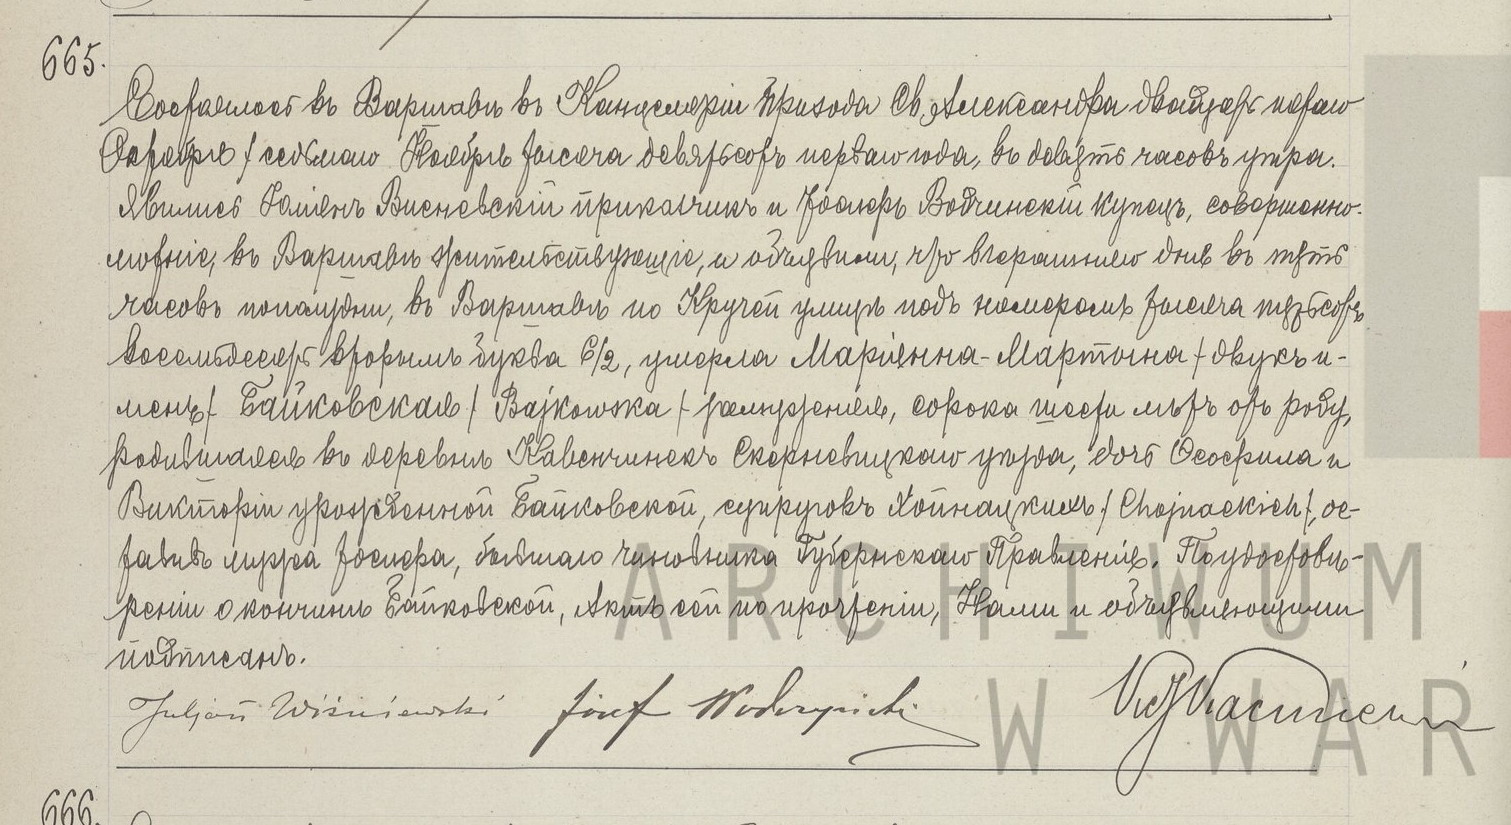 665.
Состоялось въ Варшавѣ въ Канцеляріи Прихода Св. Александра двадцать пятаго
Октября / седьмаго Ноября тысяча девятьсотъ перваго года, въ девять часовъ утра.
Явились Юліянъ Висневскій прикащикъ и Іосифъ Водчинскій купецъ, совершенно-
лѣтніе, въ Варшавѣ жительствующіе, и объявили, что вчерашняго дня въ пять
часовъ пополудни, въ Варшавѣ по Кручей улицѣ подъ номеромъ тысяча пятьсотъ
восемьдесятъ вторымъ буква С/2, умерла Маріянна-Мартына / двухъ и-
менъ / Байковская / Bajkowska / замужняя, сорока шести лѣтъ отъ роду,
родившаяся въ деревнѣ Кавенчинекъ Скерневицкаго уѣзда, дочь Ѳеофила и
Викторіи урожденной Байковской, супруговъ Хойнацкихъ / Chojnackich /, ос-
тавивъ мужа Іосифа, бывшаго чиновника Губернскаго Правленія. По удостовѣ-
реніи о кончинѣ Байковской, Актъ сей по прочтеніи, Нами и объявляющими
подписанъ.
Juljan Wiśniewski Józef Wodczyński
666.
ARCHIWUM
W WAR